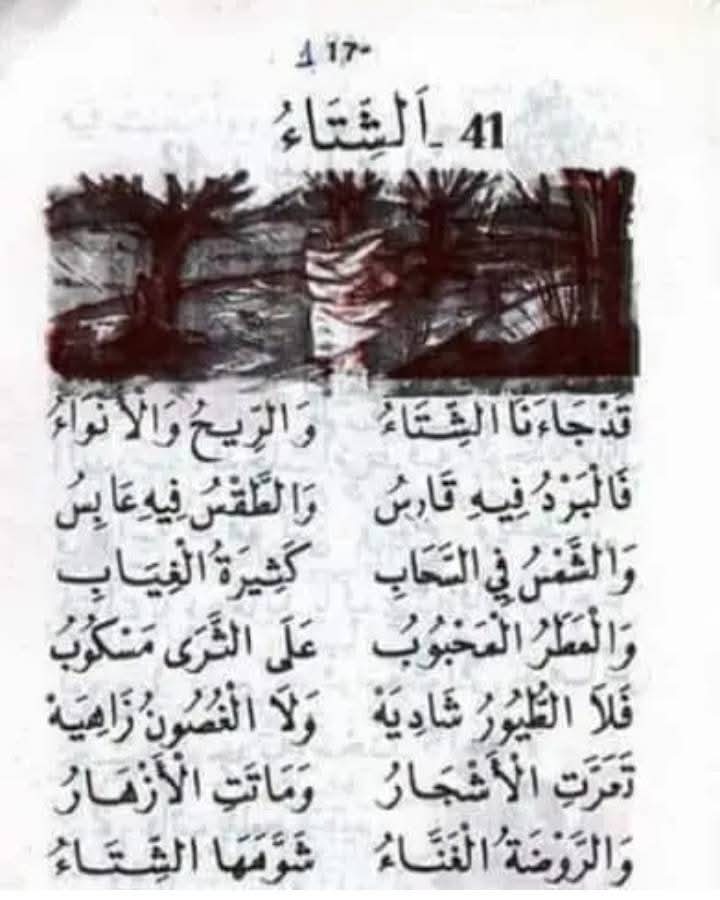 17-
41 - اَلشِّتَاءُ
قَدْ جَاءَنَا الشِّتَاءُ وَالرِّيحُ وَالْأَنْوَاءُ
فَالْبَرْدُ فِيهِ قَارِسُ وَالطَّقْسُ فِيهِ عَابِسُ
وَالشَّمْسُ فِي السَّحَابِ كَثِيرَةُ الْغِيَابِ
وَالْمَطَرُ الْمَحْبُوبُ عَلَى الثَّرَى مَسْكُوبُ
فَلاَ الطُّيُورُ شَادِيَهْ وَلاَ الْغُصُونُ زَاهِيَهْ
تَعَرَّتِ الْأَشْجَارُ وَمَاتَتِ الْأَزْهَارُ
وَالرَّوْضَةُ الْغَنَّاءُ شَوَّهَهَا الشِّتَاءُ